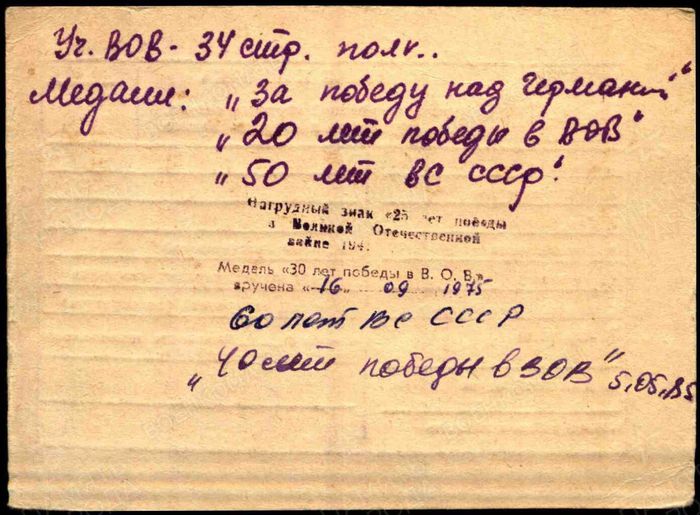 Уч. ВОВ - 34 стр. полк..
Медали: „За победу над Германией"
„20 лет победы в ВОВ"
„50 лет ВС СССР".
Нагрудный знак «25 лет победы
в Великой Отечественной
войне 194.
Медаль «30 лет победы в В. О. В.»
вручена «16» 09 1975
60 лет ВС СССР
„40 лет победы в ВОВ" 5,05,85